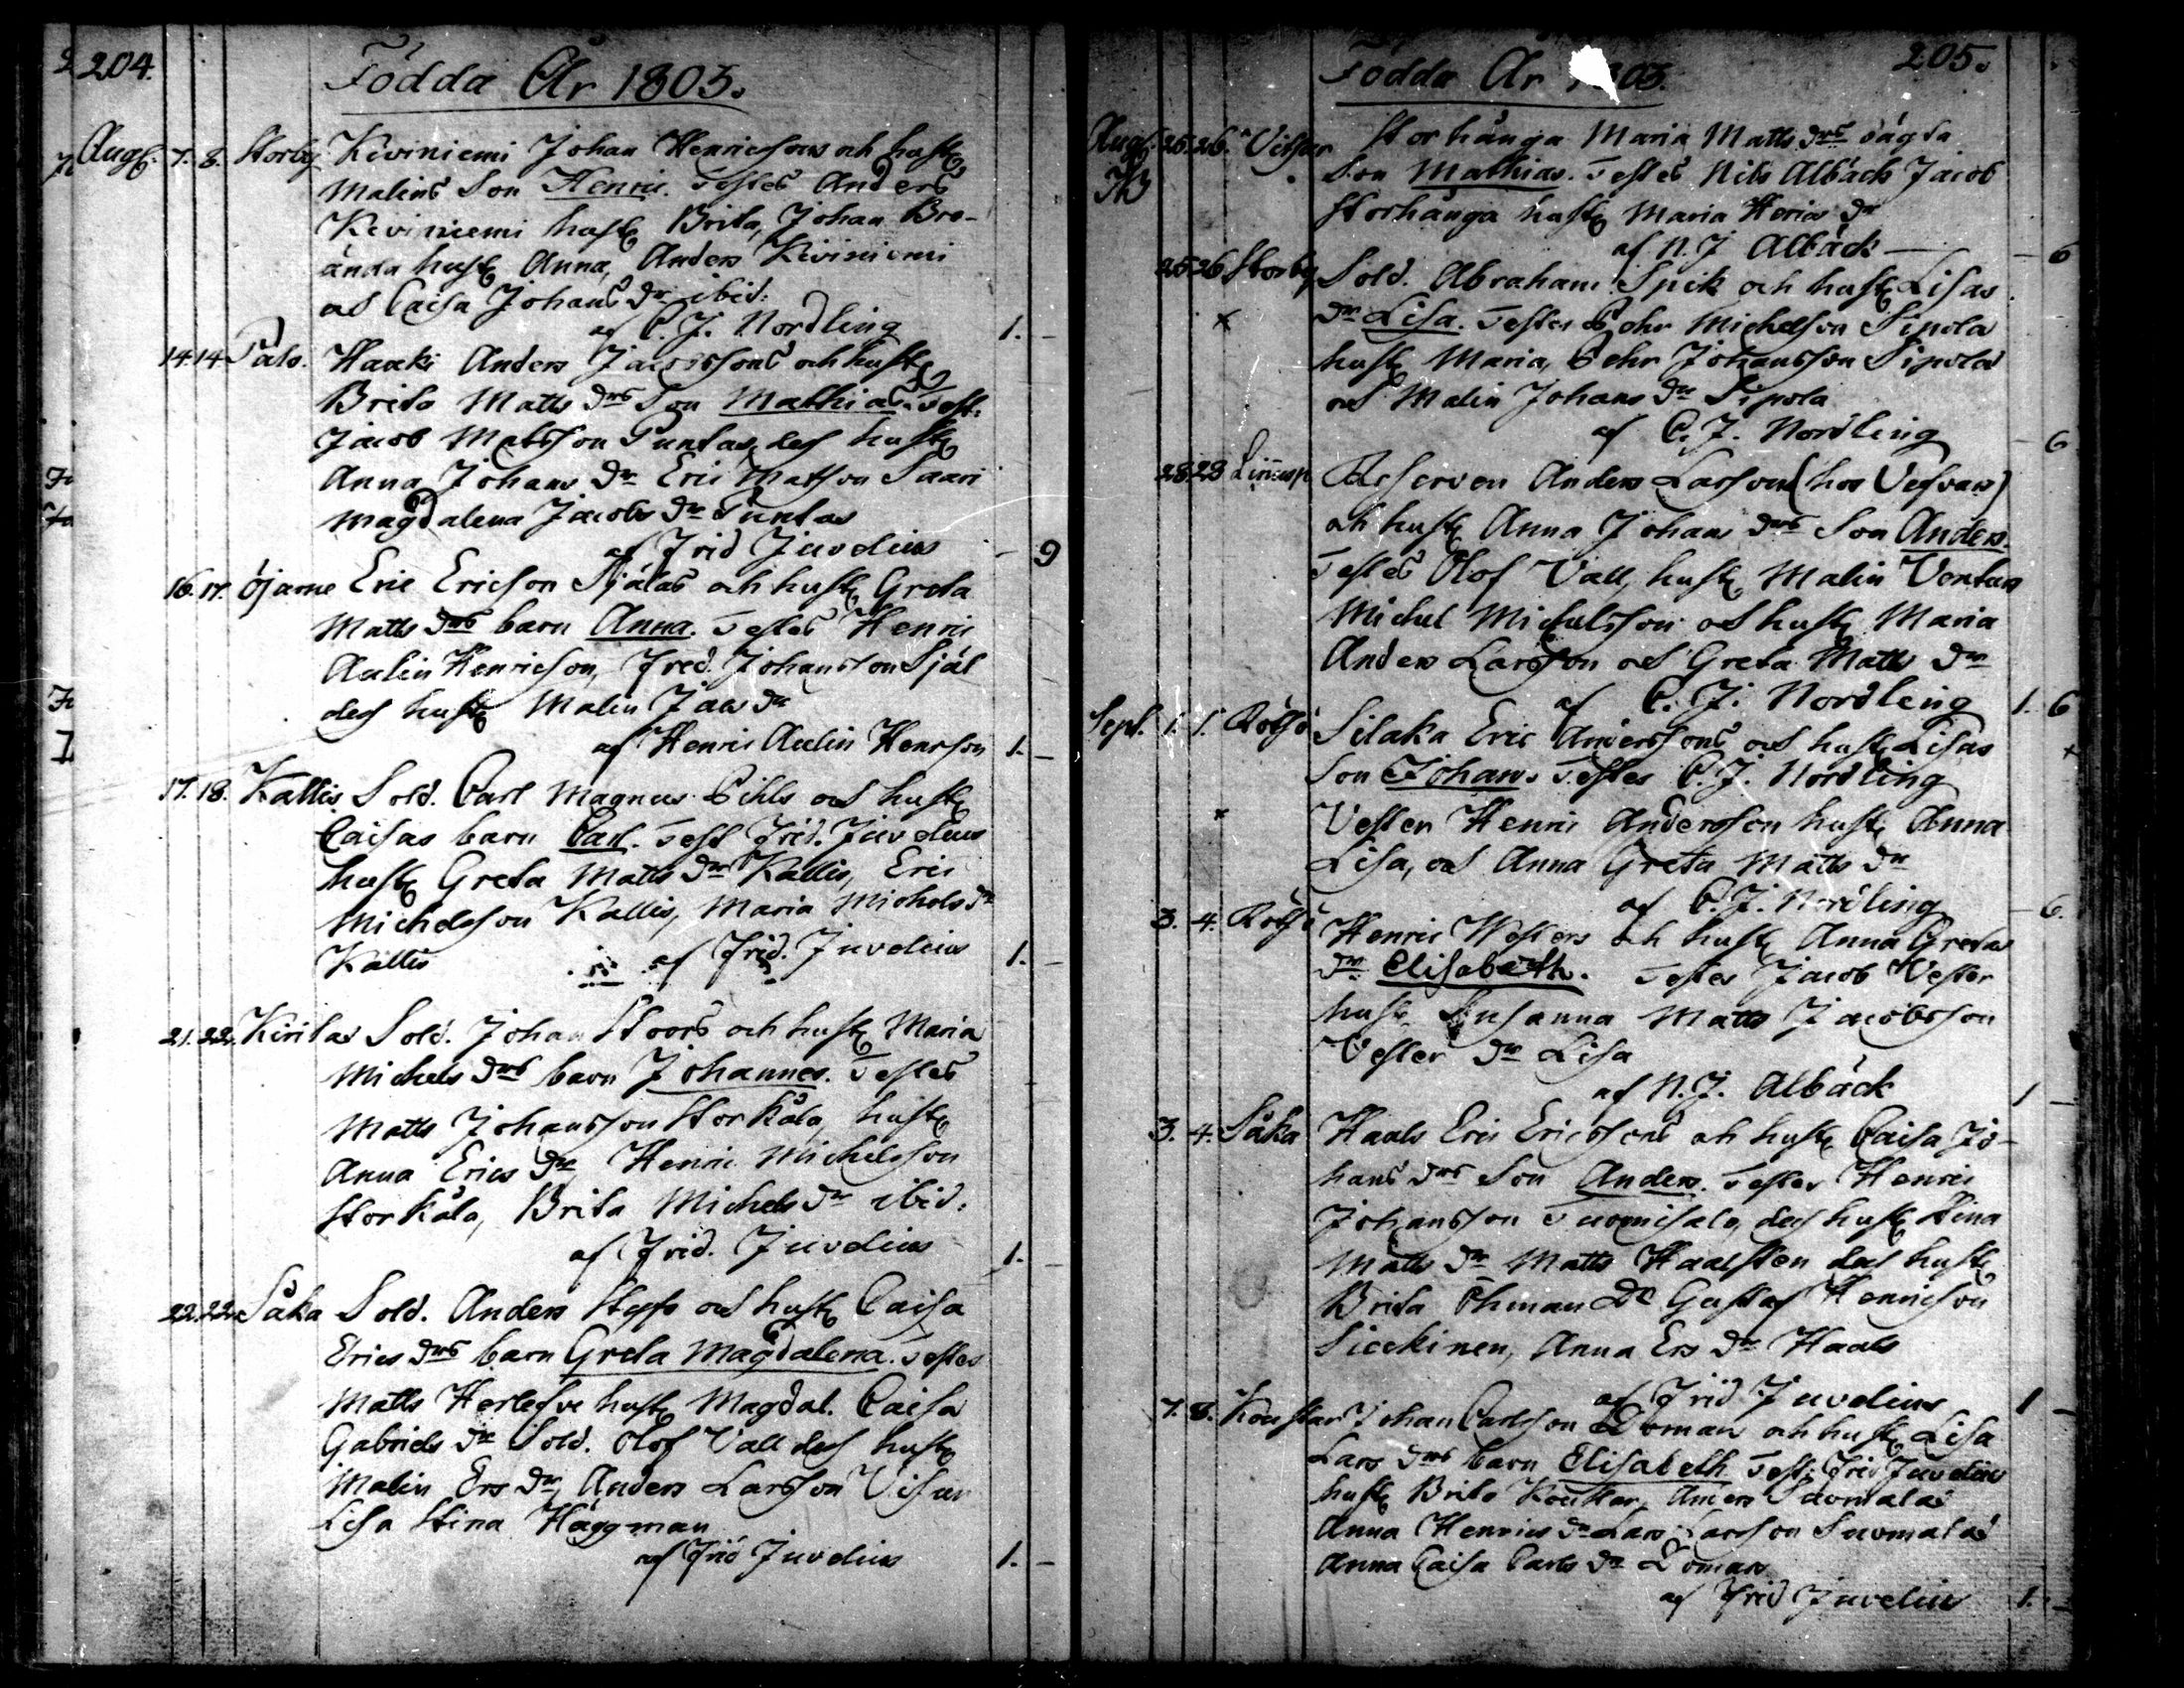 204.
Födda År 1803.
Aug. 7. 8. Storby Kiviniemi Johan Henricssons och hustr
Malins Son Henric. Testes Anders
Kiviniemi hustr Brita, Johan Bro-
ända hustr Anna, Anders Kiviniemi
och Caisa Johans dr ibid:
af C. J. Nordling 1. -
14. 14 Palo. Haaki Anders Jacobssons och hustr
Brita Matts drs Son Mathias. Test:
Jacob Matsson Puntas, des hustr
Anna Johans dr Eric Matsson Saari
Magdalena Jacobs dr Puntas
af Frid Juvelius - 9
16. 17. Öjarne Eric Ericson Själas och hustr Greta
Matts drs barn Anna. Testes Henric
Aulin Henricson, Fred. Johansson Själ
des hustr Malin Jacs dr
af Henric Aulin Henrson 1. -
17. 18. Kallis Sold. Carl Magnus Pihls och hustr
Caisas barn Carl. Test Frid. Juvelius
hustr Greta Matts dr Kallis, Eric
Michelsson Kallis, Maria Michels dr
Kallis af Frid. Juvelius 1. -
21. 22. Kirilas Sold. Johan Stoors och hustr Maria
Michels drs barn Johannes. Testes
Matts Johansson Storkåla, hustr
Anna Erics dr, Henric Michelsson
Storkåla, Brita Michels dr ibid:
af Frid. Juvelius 1. -
22. 22. Såka Sold. Anders och hustr Caisa
Erics drs barn Greta Magdalena. Testes
Matts hustr Magdal. Caisa
Gabriels dr Sold. Olof Vall des hustr
Malin Ers dr, Anders Larsson
Lisa Stina Häggman
af Frid Juvelius 1. -
205.
Födda År 1803.
Aug. 25. 26. Storhånga Maria Matts drs oägta
Son Mathias. Testes Nils Albäck Jacob
Storhånga hustr Maria dr
af N. J. Albäck - 6
25. 26 Storby Sold. Abraham Spik och hustr Lisas
dr Lisa. Testes Pehr Michelson Sipola
hustr Maria, Pehr Johansson Sipola
och Malin Johans dr Sipola
af C. J. Nordling - 6
28. 28 Anders Larsson (hos
och hustr Anna Johans drs Son Anders.
Testes Olof Vall, hustr Malin
Michel Michelsson och hustr Maria
Anders Larsson och Greta Matts dr
af C. J. Nordling 1. 6
Sept. 1. 1. Silaka Eric Anderssons och hustr Lisas
Son Johan. Testes C. J. Nordling
Vester Henric Andersson hustr Anna
Lisa, och Anna Greta Matts dr
af C. J. Nordling - 6.
3. 4. Henric Westers och hustr Anna Gretas
dr Elisabeth. Testes Jacob Vester
hustr Susanna Matts Jacobsson
Vester dr Lisa
af N. J. Albäck 1 -
3. 4. Såka Haals Eric Ericssons och hustr Caisa Jo-
hans drs Son Anders. Testes Henric
Johansson Tuomisalo, des hustr Stina
Matts dr Matts Haalsten des hustr
Brita Öhman Dr Gustaf Henricson
Siickinen, Anna Ers dr Haals
af Frid Juvelius 1 -
7. 8. Johan Carlsson Doman och hustr Lisa
Lars drs barn Elisabeth Test: Frid Juvelius
hustr Brita Anders Suomalas
Anna Henrics dr Lars Larsson Suomalas
Anna Caisa Carls dr Doman
af Frid Juvelius 1. -